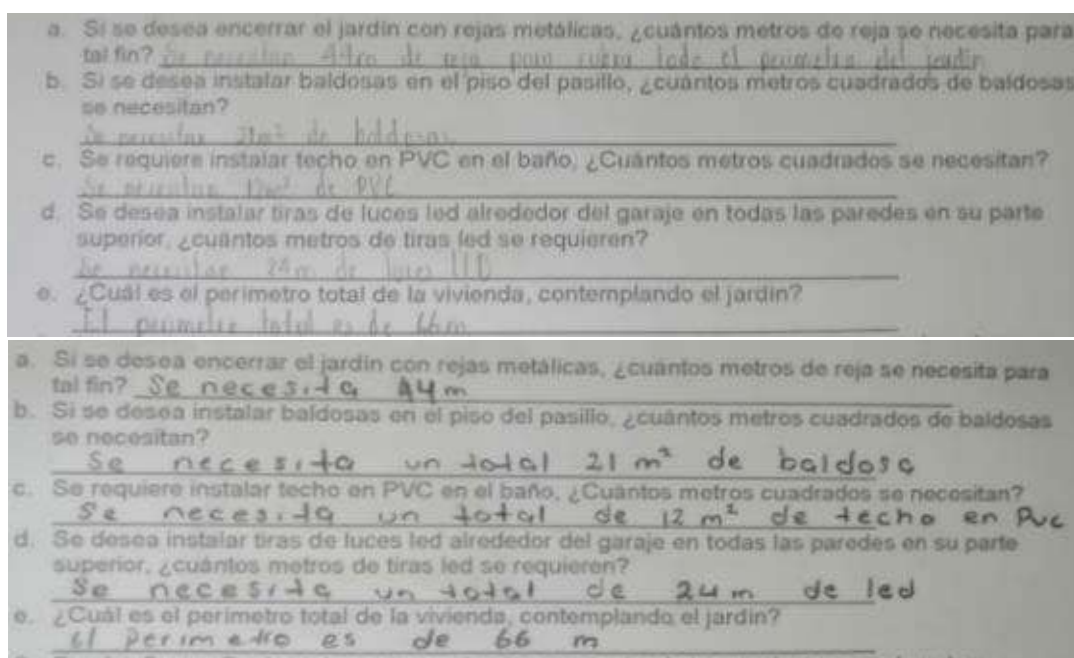 a. Si se desea encerrar el jardín con rejas metálicas, ¿cuántos metros de reja se necesita para
tal fin? Se necesitan 44m de reja para cubrir todo el perimetro del jardin
b. Si se desea instalar baldosas en el piso del pasillo, ¿cuántos metros cuadrados de baldosas
se necesitan?
Se necesitan 21m² de baldosas
c. Se requiere instalar techo en PVC en el baño, ¿Cuántos metros cuadrados se necesitan?
Se necesitan 12m² de PVC
d. Se desea instalar tiras de luces led alrededor del garaje en todas las paredes en su parte
superior, ¿cuántos metros de tiras led se requieren?
Se necesitan 24m de luces LED
e. ¿Cuál es el perímetro total de la vivienda, contemplando el jardín?
El perimetro total es de 66m
a. Si se desea encerrar el jardín con rejas metálicas, ¿cuántos metros de reja se necesita para
tal fin? Se necesita 44m
b. Si se desea instalar baldosas en el piso del pasillo, ¿cuántos metros cuadrados de baldosas
se necesitan?
Se necesita un total 21 m² de baldosa
c. Se requiere instalar techo en PVC en el baño, ¿Cuántos metros cuadrados se necesitan?
Se necesita un total de 12 m² de techo en Pvc
d. Se desea instalar tiras de luces led alrededor del garaje en todas las paredes en su parte
superior, ¿cuántos metros de tiras led se requieren?
Se necesita un total de 24 m de led
e. ¿Cuál es el perímetro total de la vivienda, contemplando el jardín?
El perimetro es de 66 m